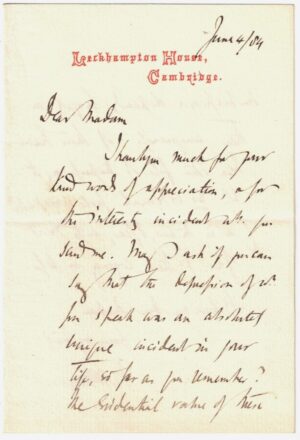 June 4/04
Leckhampton House,
Cambridge.
Dear Madam
Thank you much for your
kind words of appreciation, & for
the interesting incident wh. you
send me. May I ask if you can
say that the depression of wh.
you speak was an absolutely
unique incident in your
life, so far as you remember?
The evidential value of these